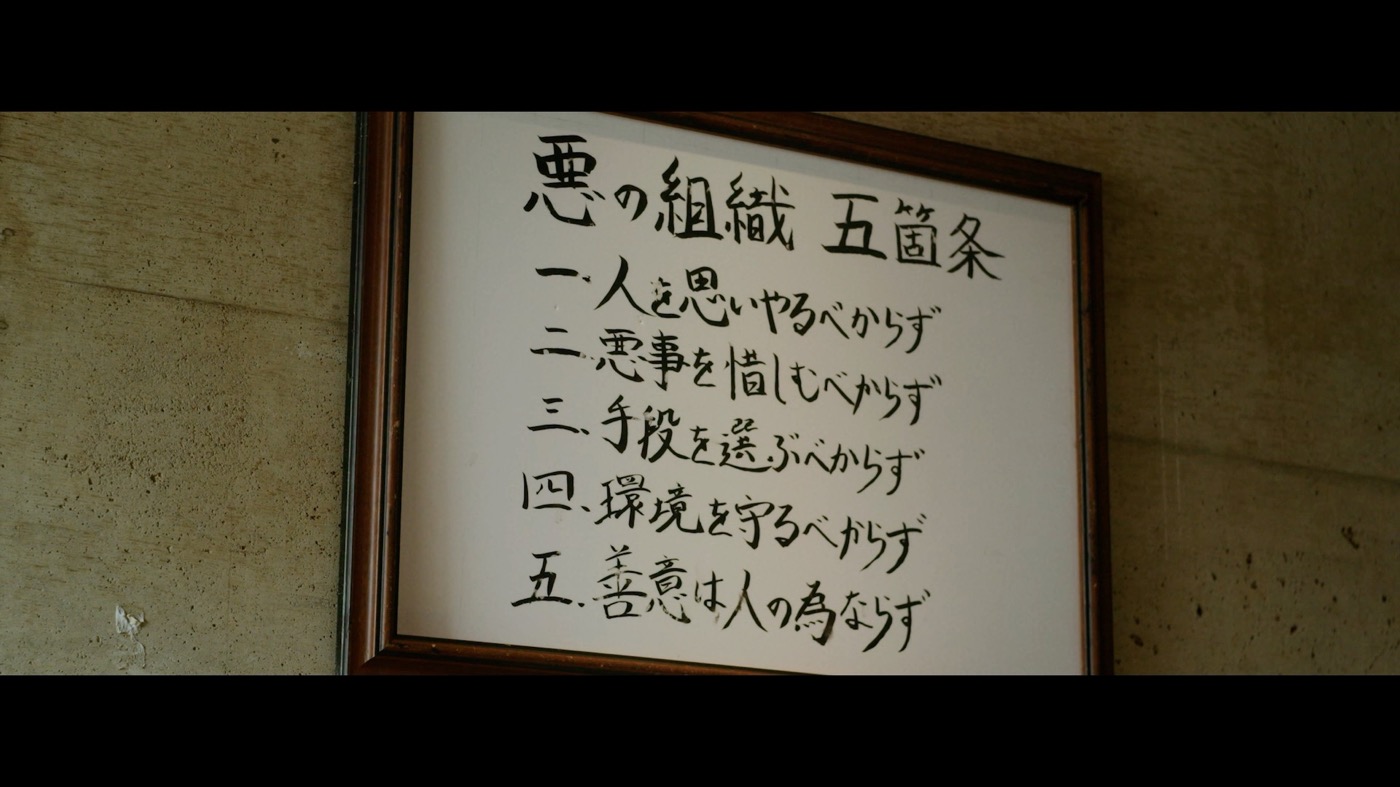 悪の組織 五箇条
一.人を思いやるべからず
二.悪事を惜しむべからず
三.手段を選ぶべからず
四.環境を守るべからず
五.善意は人の為ならず